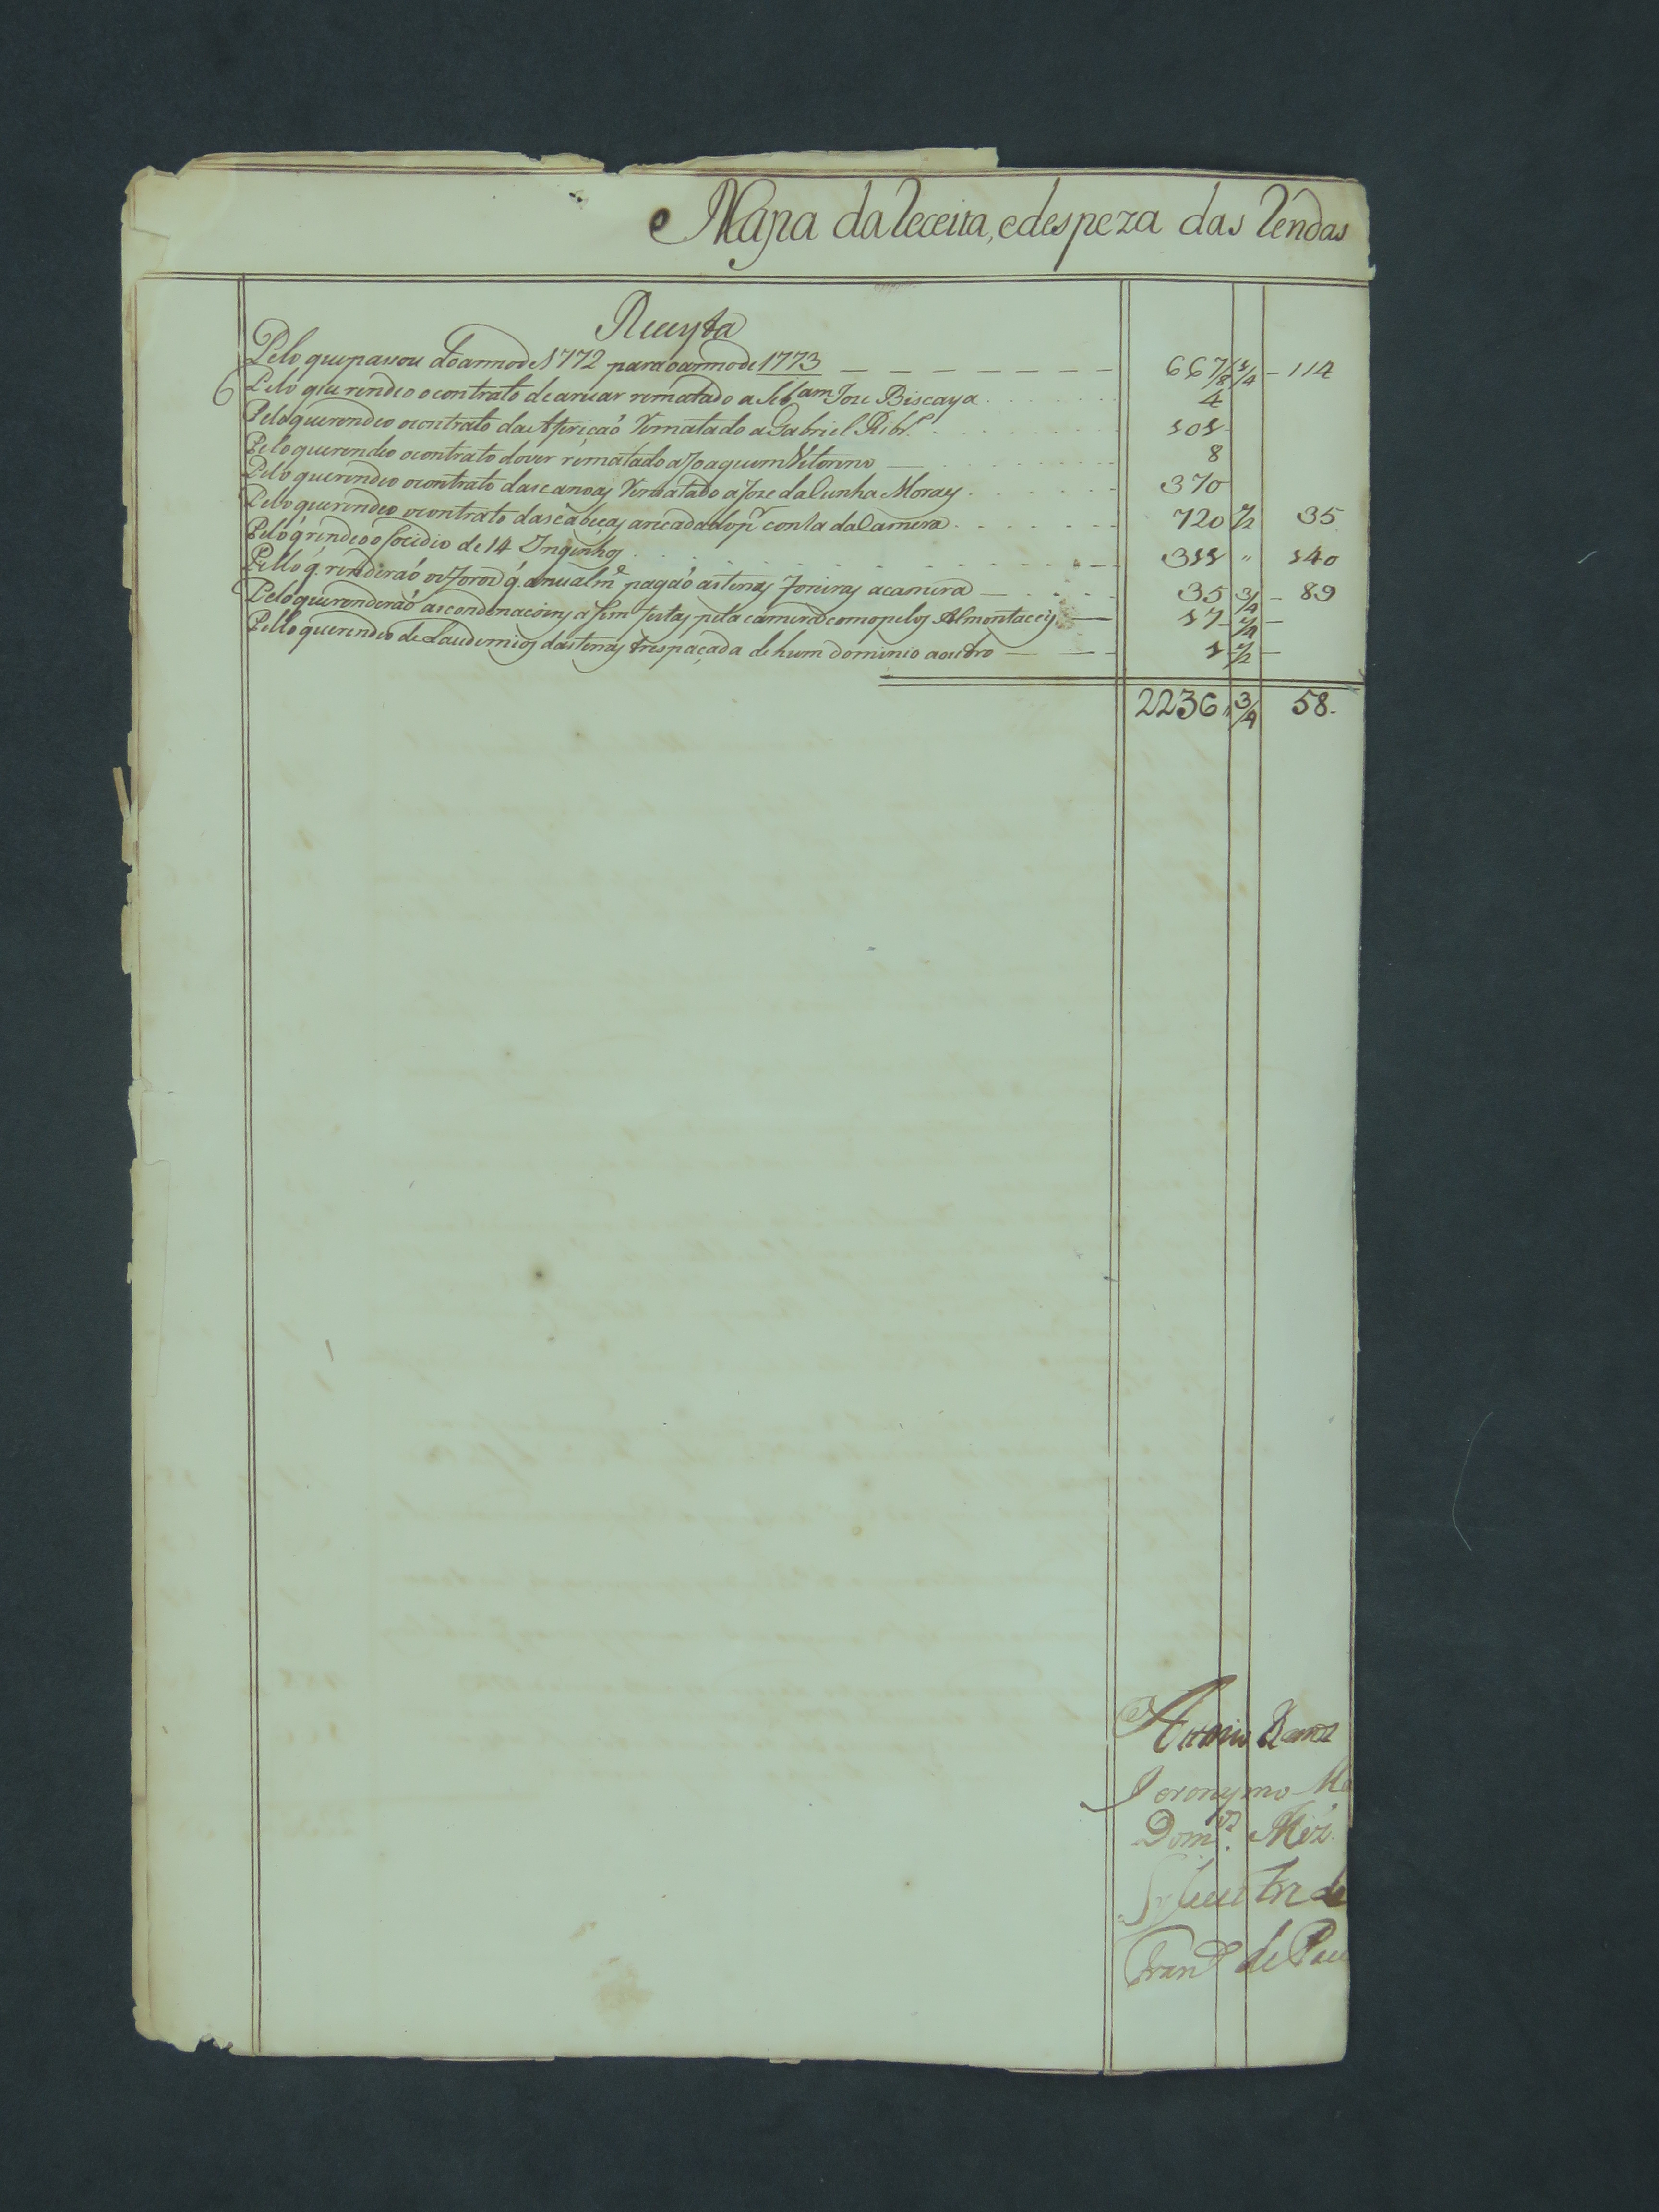 Mapa da Receita, e despeza das Rendas
Receyta
Pelo que passou do anno de 1772 para o anno de 1773 667/8 1/4 114
Pelo que rendeo o contrato de aruar rematado a Seb.am Joze Biscaya 4
Pelo que rendeo o contrato da Afericaõ Rematado a Gabriel Ribr.o 101
Pelo que rendeo o contrato dover rematado a Joaquim Vitorino 8
Pelo que rendeo o contrato das canoas Rematado a Joze da Cunha Moraes 370
Pelo que rendeo o contrato das cabeças arecadado p.r conta da Camera 720 1/2 35
Pelo q̃ rendeo o socidio de 14 Ingenhos 311 " 140
Pello q̃ renderaõ os Foros q̃ anualm.e pagaõ as terras Foreiras a camera 35 3/4 89
Pelo que renderaõ as condenaçoins asim feitas pela camera como pelos Almontaceis 17 1/4
Pello que rendeo de Laudemios das terras trespaçada de hum dominio a outro 1 1/2
2236 " 3/4 58
Antonio Ramz
Jeronymo Ma
Dom.os
Silvestre de
Fran.co de Pau